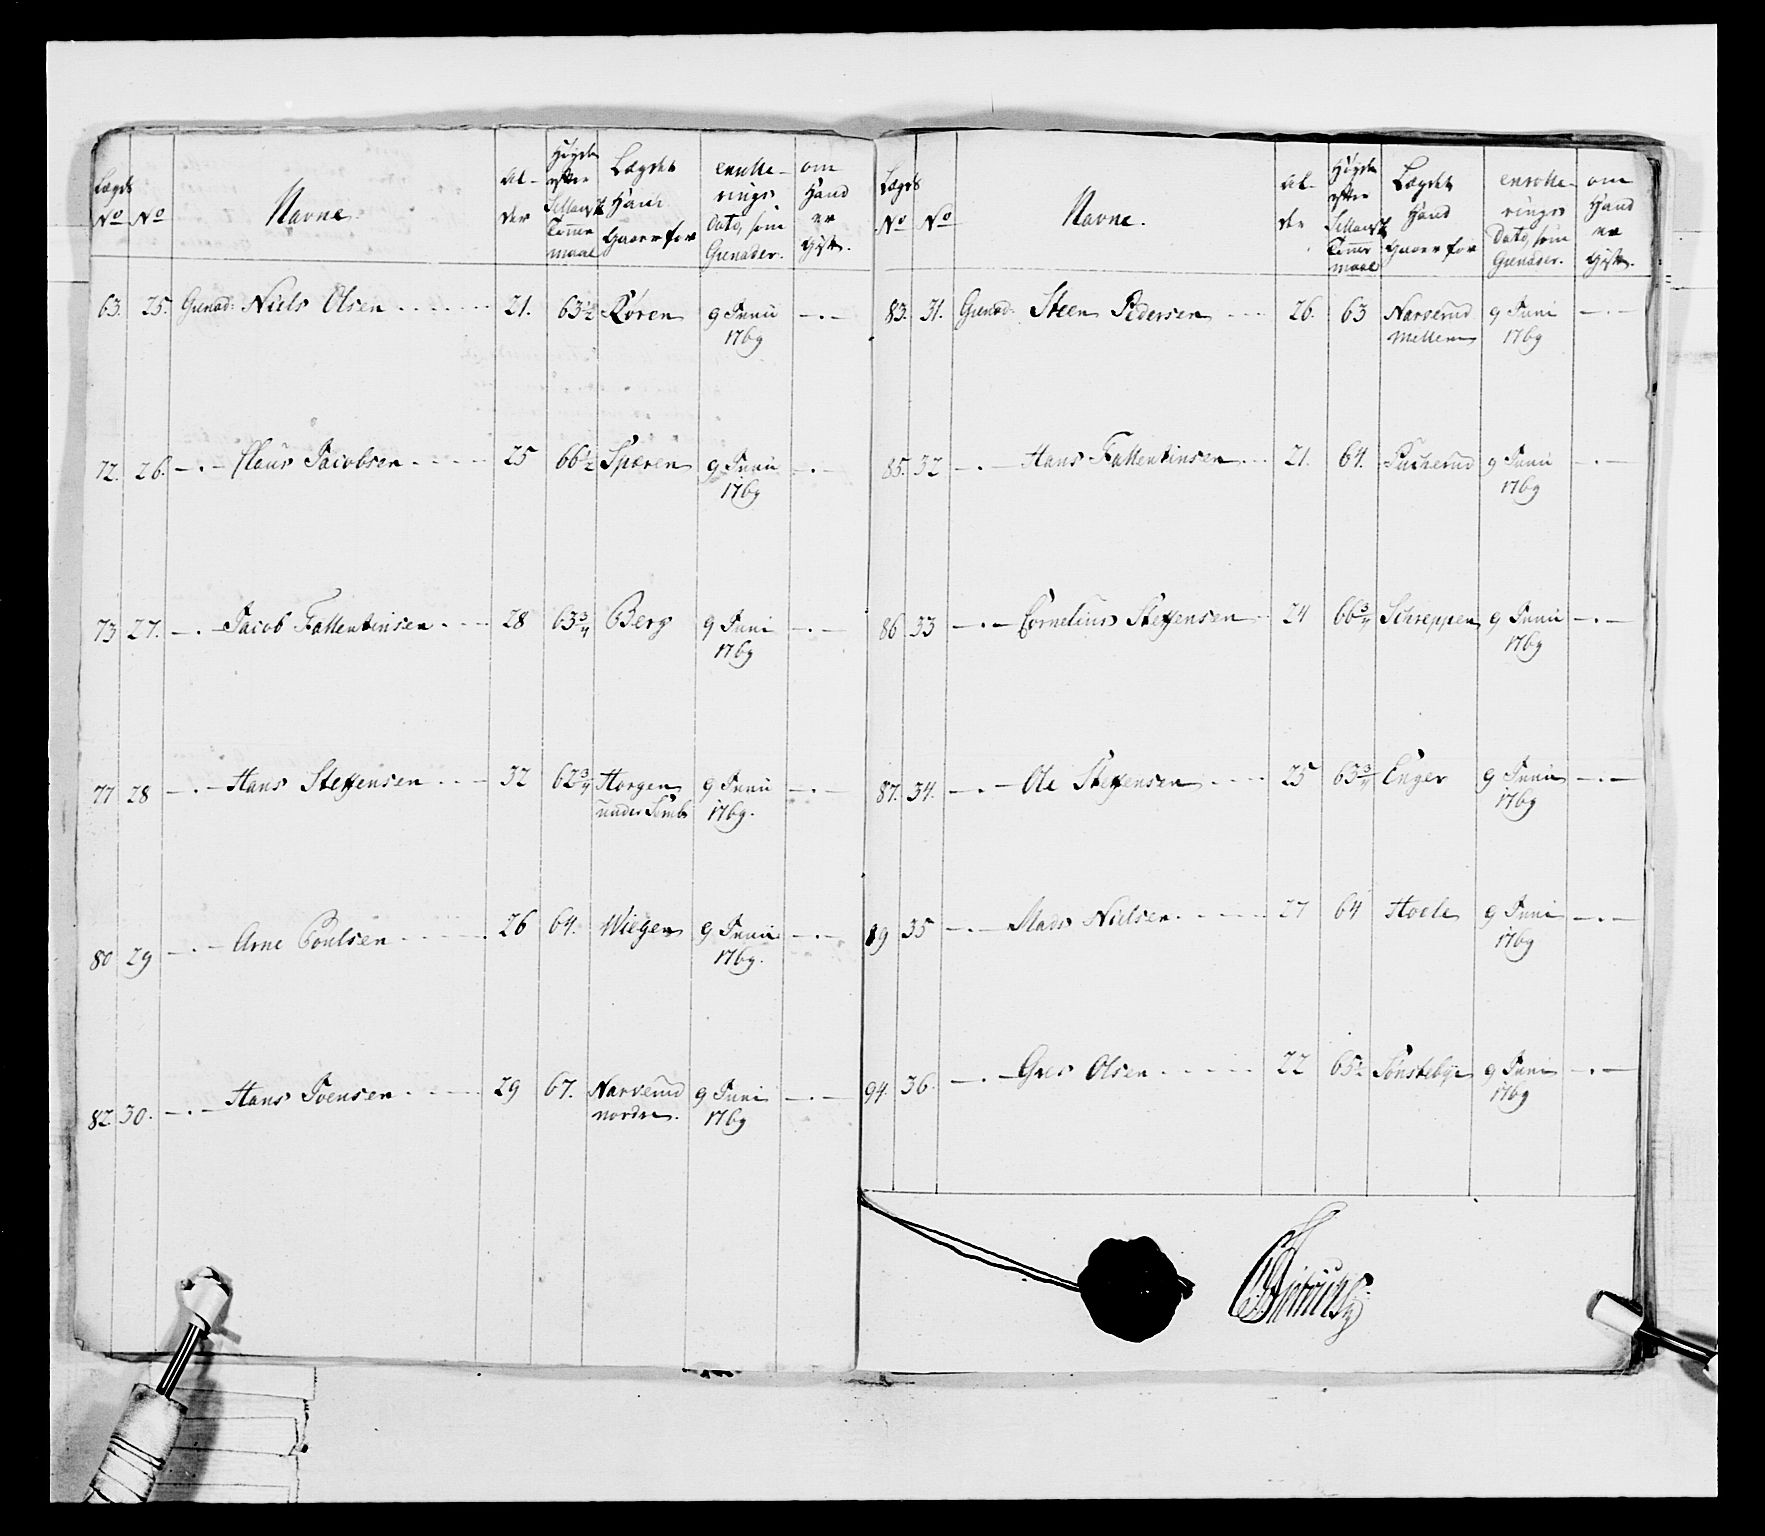 Lægds No | No | Navne | Al- der | Høyde efter Sellandsk Tomme maal | Lægdet Hand Gaaer for | enrolle- rings Dato, som Grenader. | om Hand er Gift.
63. | 25. | Grenad: Niels Olsen | 21. | 63 1/2 | Røren | 9 Junii 1769 | —.—
72. | 26. | —.— Claus Jacobsen | 25 | 66 1/2 | Spæren | 9 Junii 1769 | —.—
73 | 27. | —.— Jacob Fallentinsen | 28 | 63 3/4 | Berg | 9 Juni 1769 | —.—
77 | 28 | —.— Hans Steffensen | 32 | 62 3/4 | Horgen under | 9 Junii 1769. | —.—
80 | 29 | —.— Arne Poulsen | 26 | 64. | Wiegen | 9 Junii 1769. | —.—
82. | 30. | —.— Hans Joensen | 29 | 67. | Narverud nordre. | 9 Juni 1769 | —.—
Lægds No | No | Navne. | Al- der | Høyde efter Sellandsk Tomme maal | Lægdet Hand Gaaer for | enrolle- rings Dato, som Grenader. | om Hand er Gift.
83. | 31. | Grenad: Steen Pedersen | 26. | 63 | Narverud Mellem | 9 Juni 1769 | —.—
85. | 32 | —.— Hans Fallentinsen | 21. | 64. | 9 Junii 1769 | —.—
86 | 33 | —.— Cornelius Steffensen | 24 | 66 3/4 | Schreppen | 9 Junii 1769 | —.—
87. | 34. | —.— Ole Steffensen | 25 | 63 3/4 | Enger | 9 Junii 1769 | —.—
89 | 35 | —.— Mads Nielsen | 27 | 64 | Hoele | 9 Juni 1769 | —.—
94. | 36. | —.— Olsen | 22 | Sønstebye | 9 Juni 1769 | —.—